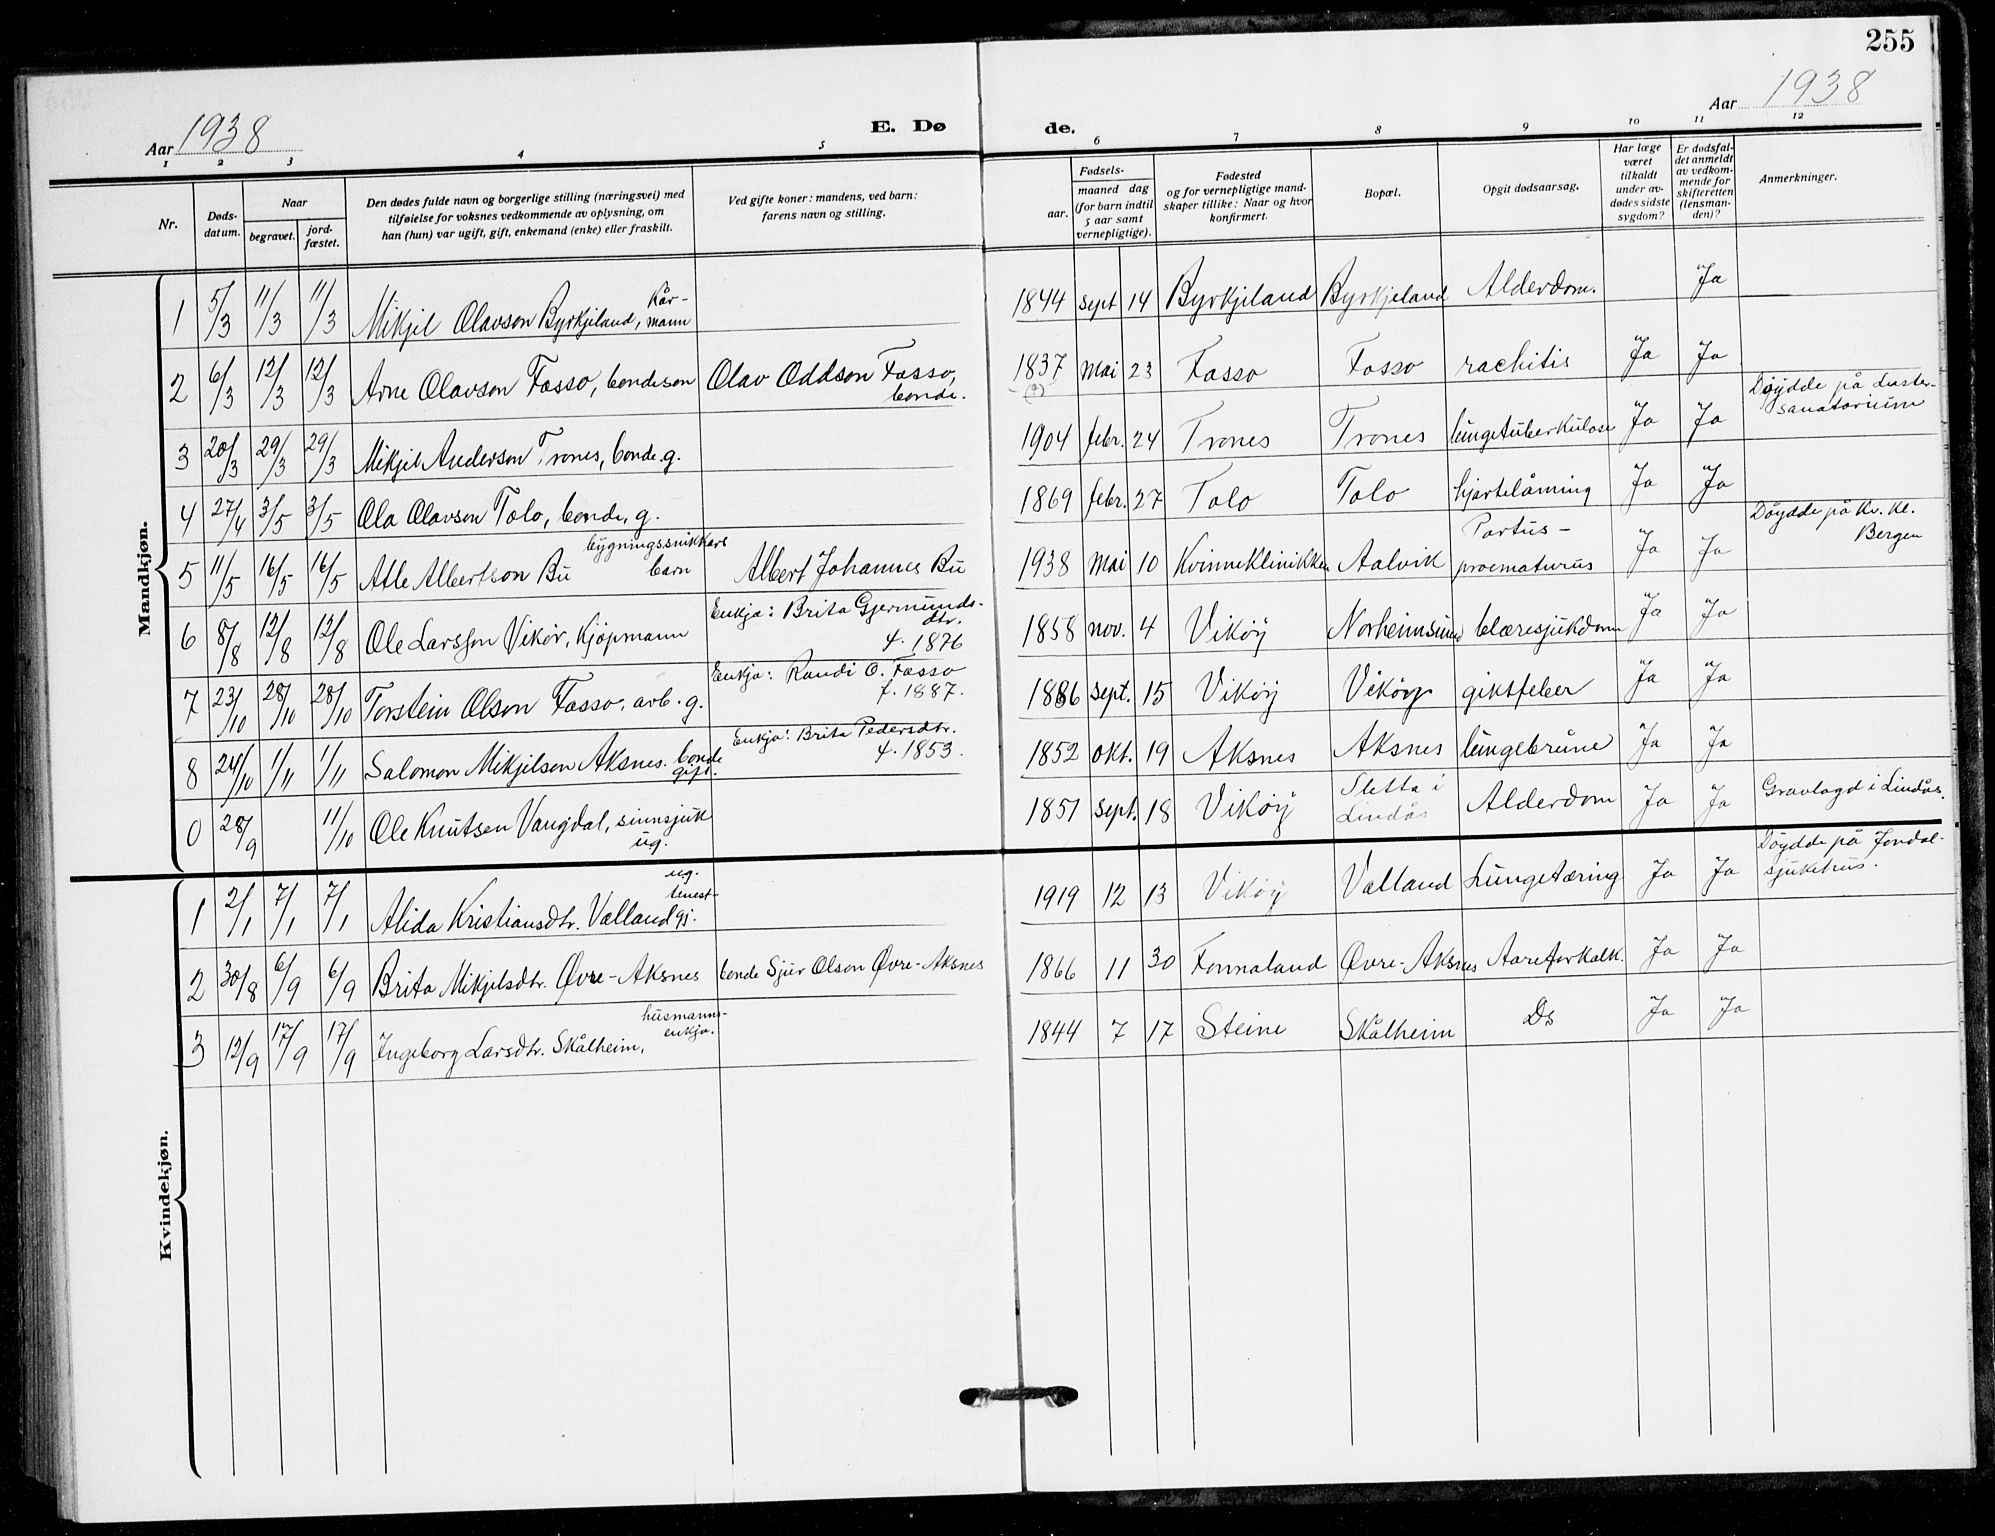 255
Aar 1938
E. Dø de.
Aar 1938
1 2 3 4 5 6 7 8 9 10 11 12
Nr.
Døds-
datum.
Naar
begravet.
jord-
fæstet.
Den dødes fulde navn og borgerlige stilling (næringsvei) med
tilføielse for voksnes vedkommende av oplysning, om
han (hun) var ugift, gift, enkemand (enke) eller fraskilt.
Ved gifte koner: mandens, ved barn:
farens navn og stilling.
Fødsels-
aar.
maaned dag
(for barn indtil
5 aar samt
vernepligtige).
Fødested
og for vernepligtige mand-
skaper tillike: Naar og hvor
konfirmert.
Bopæl.
Opgit dødsaarsag.
Har læge
været
tilkaldt
under av-
dødes sidste
sygdom?
Er dødsfal-
det anmeldt
av vedkom-
mende for
skifteretten
(lensman-
den)?
Anmerkninger.
Mandkjøn.
1 5/3 11/3 11/3 Mikjel Olavson Byrkjeland, kår-
mann
1844 sept 14 Byrkjeland Byrkjeland Alderdom. Ja
2 6/3 12/3 12/3 Arne Olavson Fosso, bondeson Olav Oddson Fosso,
bonde.
1837 mai 23 Fosso Fosso rachitis Ja Ja
(?)
3 20/3 29/3 29/3 Mikjel Anderson Trones, bonde. g.
1904 febr. 24 Trones Trones lungetuberkulose Ja Ja Döydde på Luster-
sanatorium
4 27/4 3/5 3/5 Ola Olavson Tolo, bonde, g.
1869 febr. 27 Tolo Tolo hjartelåming Ja Ja
5 11/5 16/5 16/5 Atle Albertson Bu bygningssnikkars
barn Albert Johannes Bu
1938 mai 10 Kvinneklinikken Aalvik Partus-
proematurus Ja Ja Döydde på Kv. Kl.
Bergen
6 8/8 12/8 12/8 Ole Larsson Vikör, Kjöpmann Enkja: Brita Gjermunds-
dtr.
f. 1876
1858 nov. 4 Vikøy Norheimsund blæresjukdom Ja Ja
7 23/10 28/10 28/10 Torstein Olson Fosso, arb. g. Enkja: Randi O. Fosso
f. 1887.
1886 sept. 15 Vikøy Vikøy giktfeber Ja Ja
8 24/10 1/11 1/11 Salomon Mikjelson Aksnes. bonde
gift. Enkja: Brita Pedersdtr.
f. 1853.
1852 okt. 19 Aksnes Aksnes lungebrune Ja Ja
0 28/9 11/10 Ole Knutsen Vangdal, sinnsjuk
ug.
1851 sept. 18 Vikøy Sletta i
Lindås Alderdom Ja Ja Gravlagd i Lindås.
Kvindekjøn.
1 2/1 7/1 7/1 Alida Kristiansdtr. Valland ug.
tenest-
gj.
1919 12 13 Vikøy Valland Lungetæring Ja Ja Döydde på Jondal-
sjukehus.
2 30/8 6/9 6/9 Brita Mikjelsdtr. Øvre-Aksnes bonde Sjur Olson Øvre-Aksnes
1866 11 30 Fonnaland Øvre-Aksnes Aareforkalk. Ja Ja
3 12/9 17/9 17/9 Ingeborg Larsdtr. Skålheim, husmanns-
enkja.
1844 7 17 Steine Skålheim Do Ja Ja